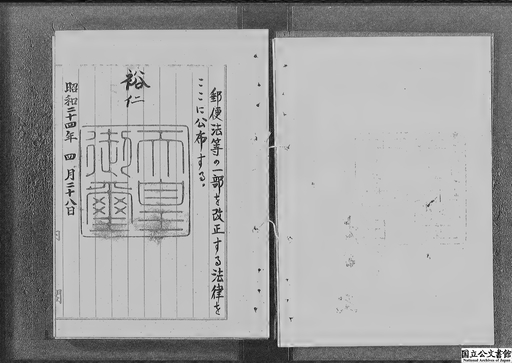 郵便法等の一部を改正する法律を
ここに公布する。
裕仁
天皇
御璽
昭和二十四年四月二十八日
国立公文書館
National Archives of Japan